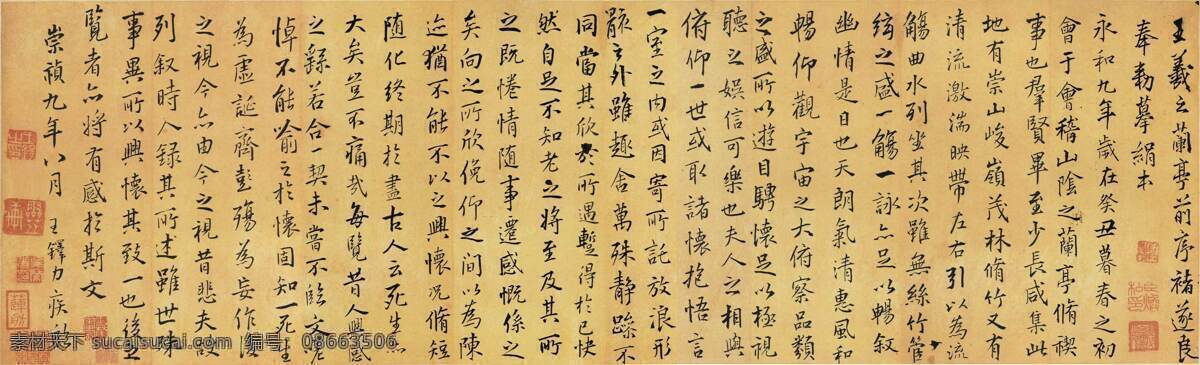 王羲之蘭亭前序褚遂良
奉勅摹絹本
永和九年歲在癸丑暮春之初
會于會稽山陰之蘭亭脩禊
事也羣賢畢至少長咸集此
地有崇山峻嶺茂林脩竹又有
清流激湍映帶左右引以為流
觴曲水列坐其次雖無絲竹管
絃之盛一觴一詠亦足以暢叙
幽情是日也天朗氣清惠風和
暢仰觀宇宙之大俯察品類
之盛所以遊目騁懷足以極視
聽之娛信可樂也夫人之相與
俯仰一世或取諸懷抱悟言
一室之内或因寄所託放浪形
骸之外雖趣舍萬殊靜躁不
同當其欣於所遇蹔得於己快
然自足不知老之將至及其所
之既惓情随事遷感慨係之
矣向之所欣俛仰之間以為陳
迹猶不能不以之興懷况脩短
随化終期於盡古人云死生亦
大矣豈不痛哉每覽昔人興感
之繇若合一契未嘗不臨文嗟
悼不能喻之於懷固知一死生
為虛誕齊彭殤為妄作後
之視今亦由今之視昔悲夫故
列叙時人録其所述雖世殊
事異所以興懷其致一也後之
覽者亦將有感於斯文
崇禎九年八月 王鐸力疾
素材天下 sucaisucai.com 编号: 08663506